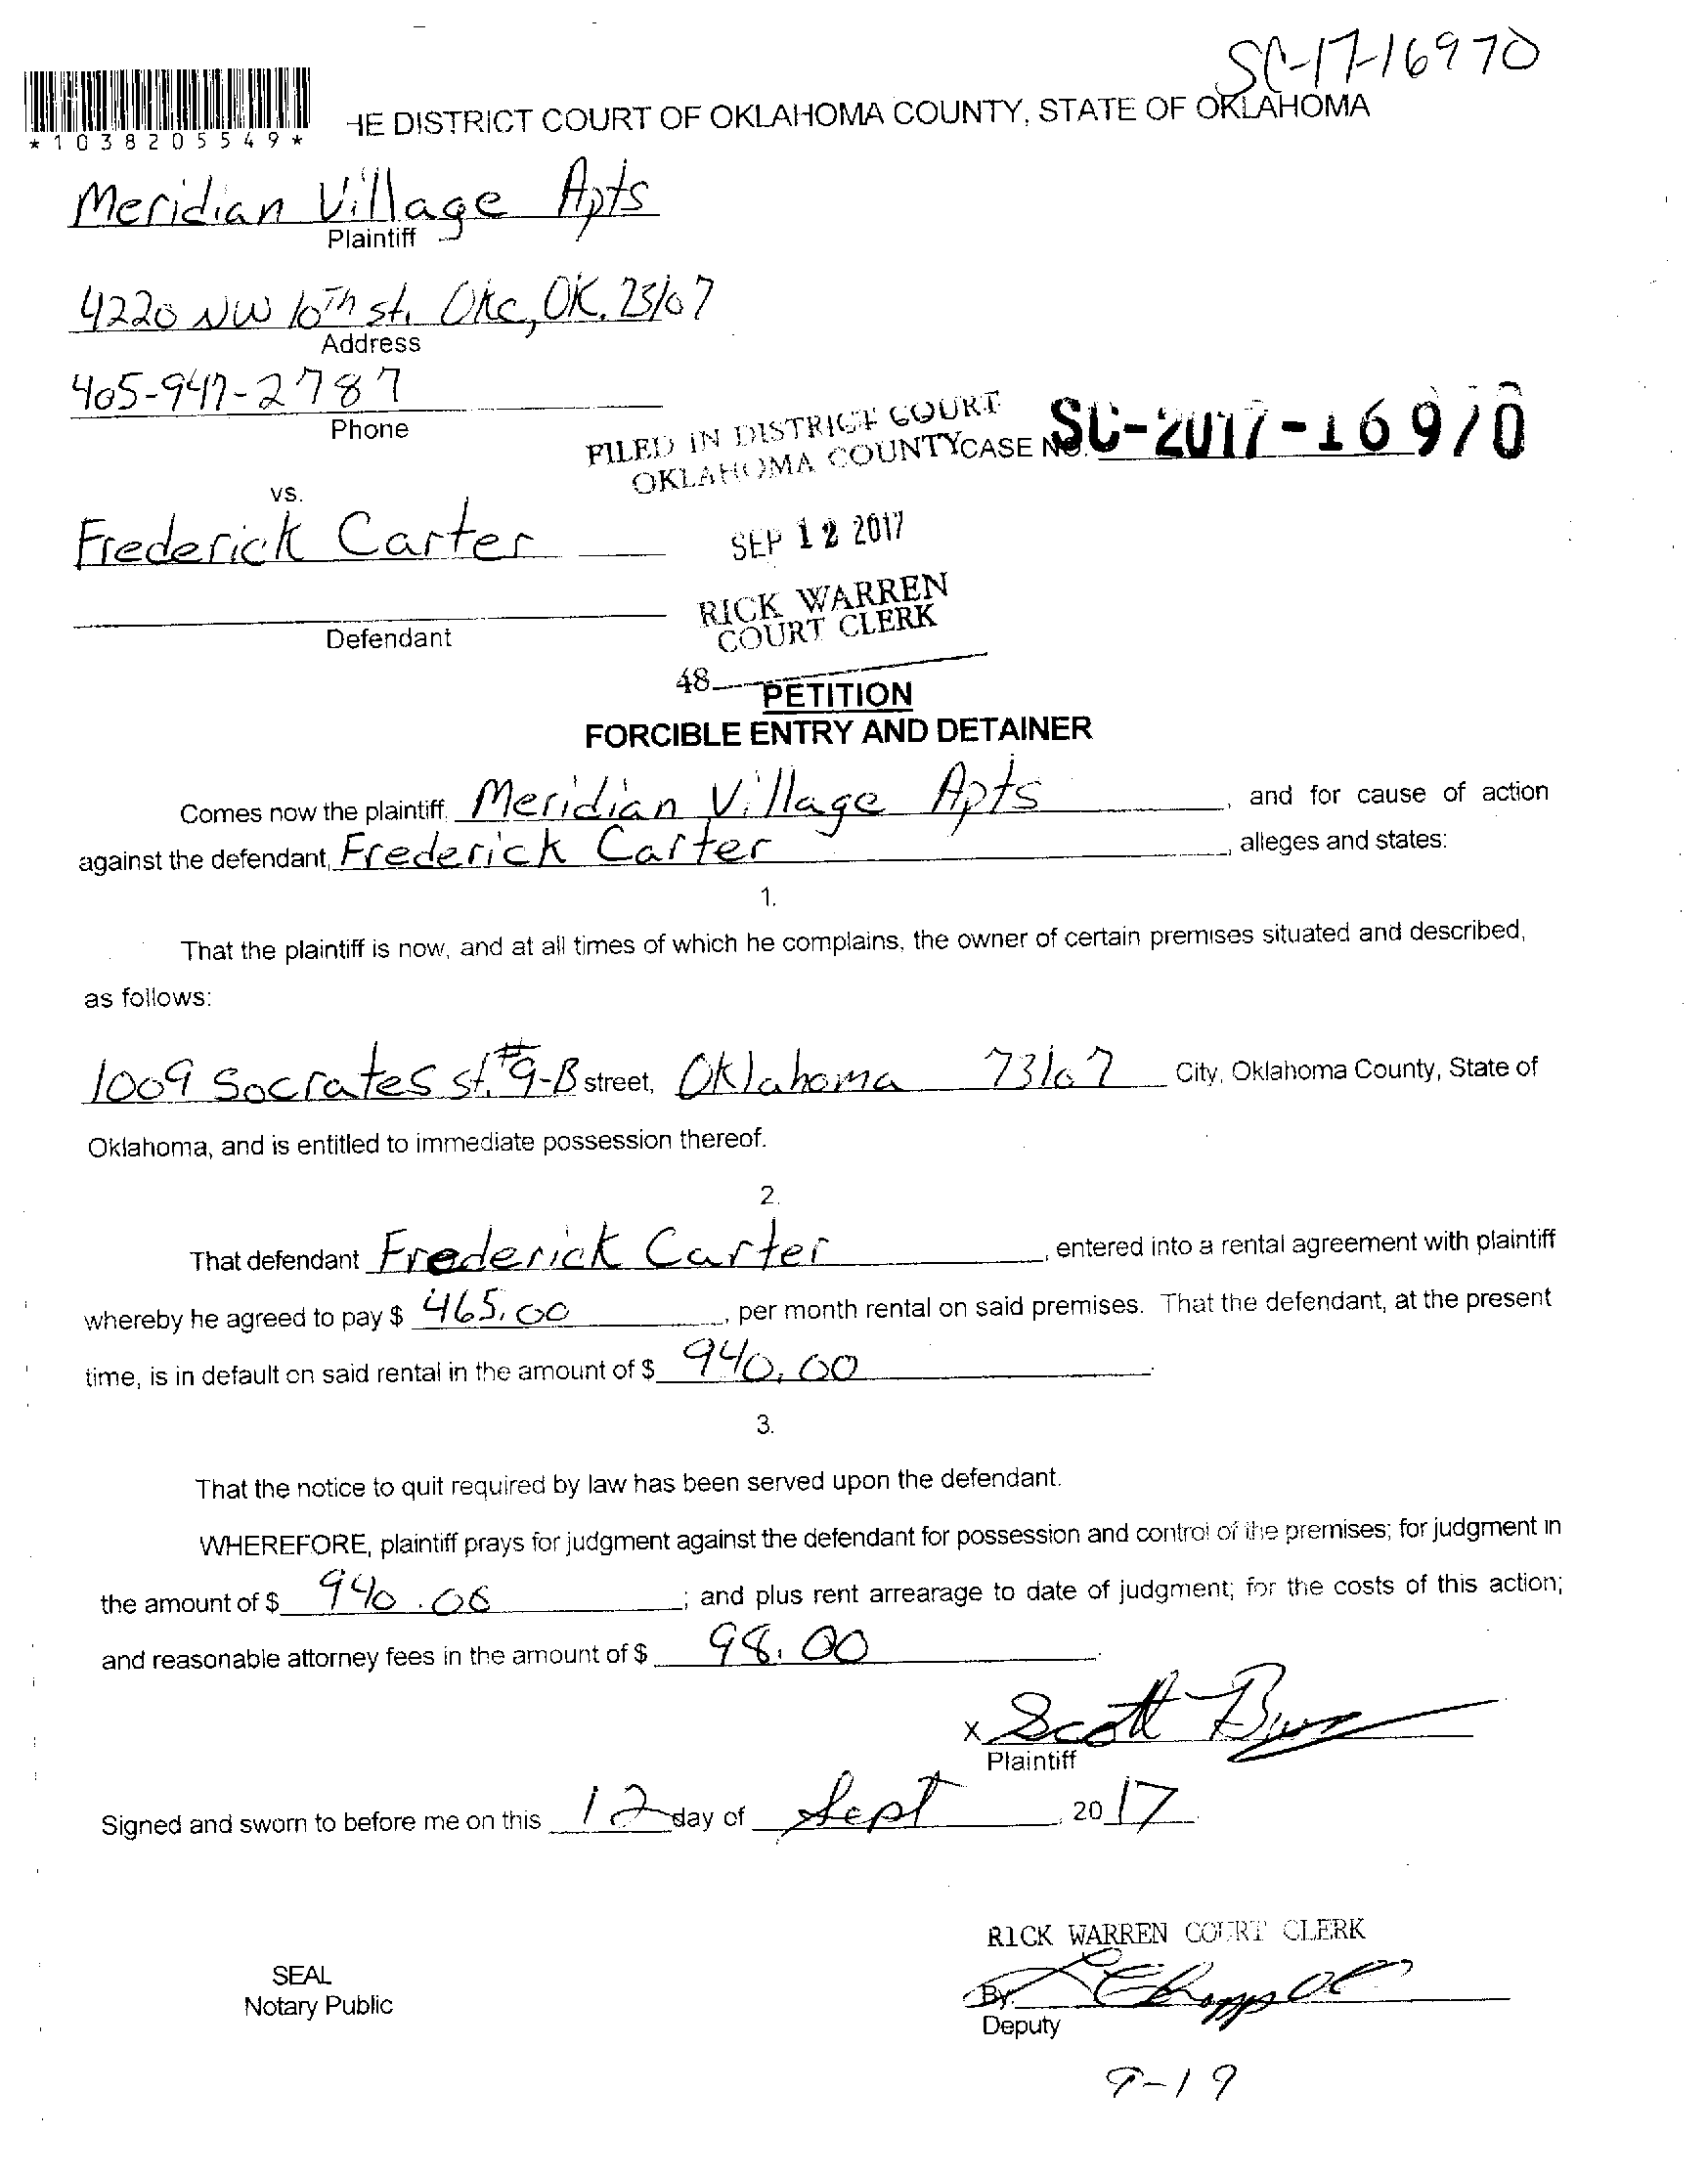 SC-17-16970
*1038205549*
HE DISTRICT COURT OF OKLAHOMA COUNTY, STATE OF OKLAHOMA
Meridian Village Apts
Plaintiff
4220 NW 10th st. OKC, OK. 73107
Address
405-947-2787
Phone
FILED IN DISTRICT COURT
OKLAHOMA COUNTY
CASE NO. SC-2017-16970
vs.
Frederick Carter
SEP 12 2017
RICK WARREN
COURT CLERK
Defendant
48
PETITION
FORCIBLE ENTRY AND DETAINER
Comes now the plaintiff, Meridian Village Apts, and for cause of action
against the defendant, Frederick Carter, alleges and states:
1.
That the plaintiff is now, and at all times of which he complains, the owner of certain premises situated and described,
as follows:
1009 Socrates st. #9-B street, Oklahoma 73107 City, Oklahoma County, State of
Oklahoma, and is entitled to immediate possession thereof.
2.
That defendant Frederick Carter, entered into a rental agreement with plaintiff
whereby he agreed to pay $ 465.00, per month rental on said premises. That the defendant, at the present
time, is in default on said rental in the amount of $ 940.00.
3.
That the notice to quit required by law has been served upon the defendant.
WHEREFORE, plaintiff prays for judgment against the defendant for possession and control of the premises; for judgment in
the amount of $ 940.00; and plus rent arrearage to date of judgment; for the costs of this action;
and reasonable attorney fees in the amount of $ 98.00.
x Scott
Plaintiff
Signed and sworn to before me on this 12 day of Sept, 2017.
RICK WARREN COURT CLERK
SEAL
By:
Notary Public
Deputy
9-19